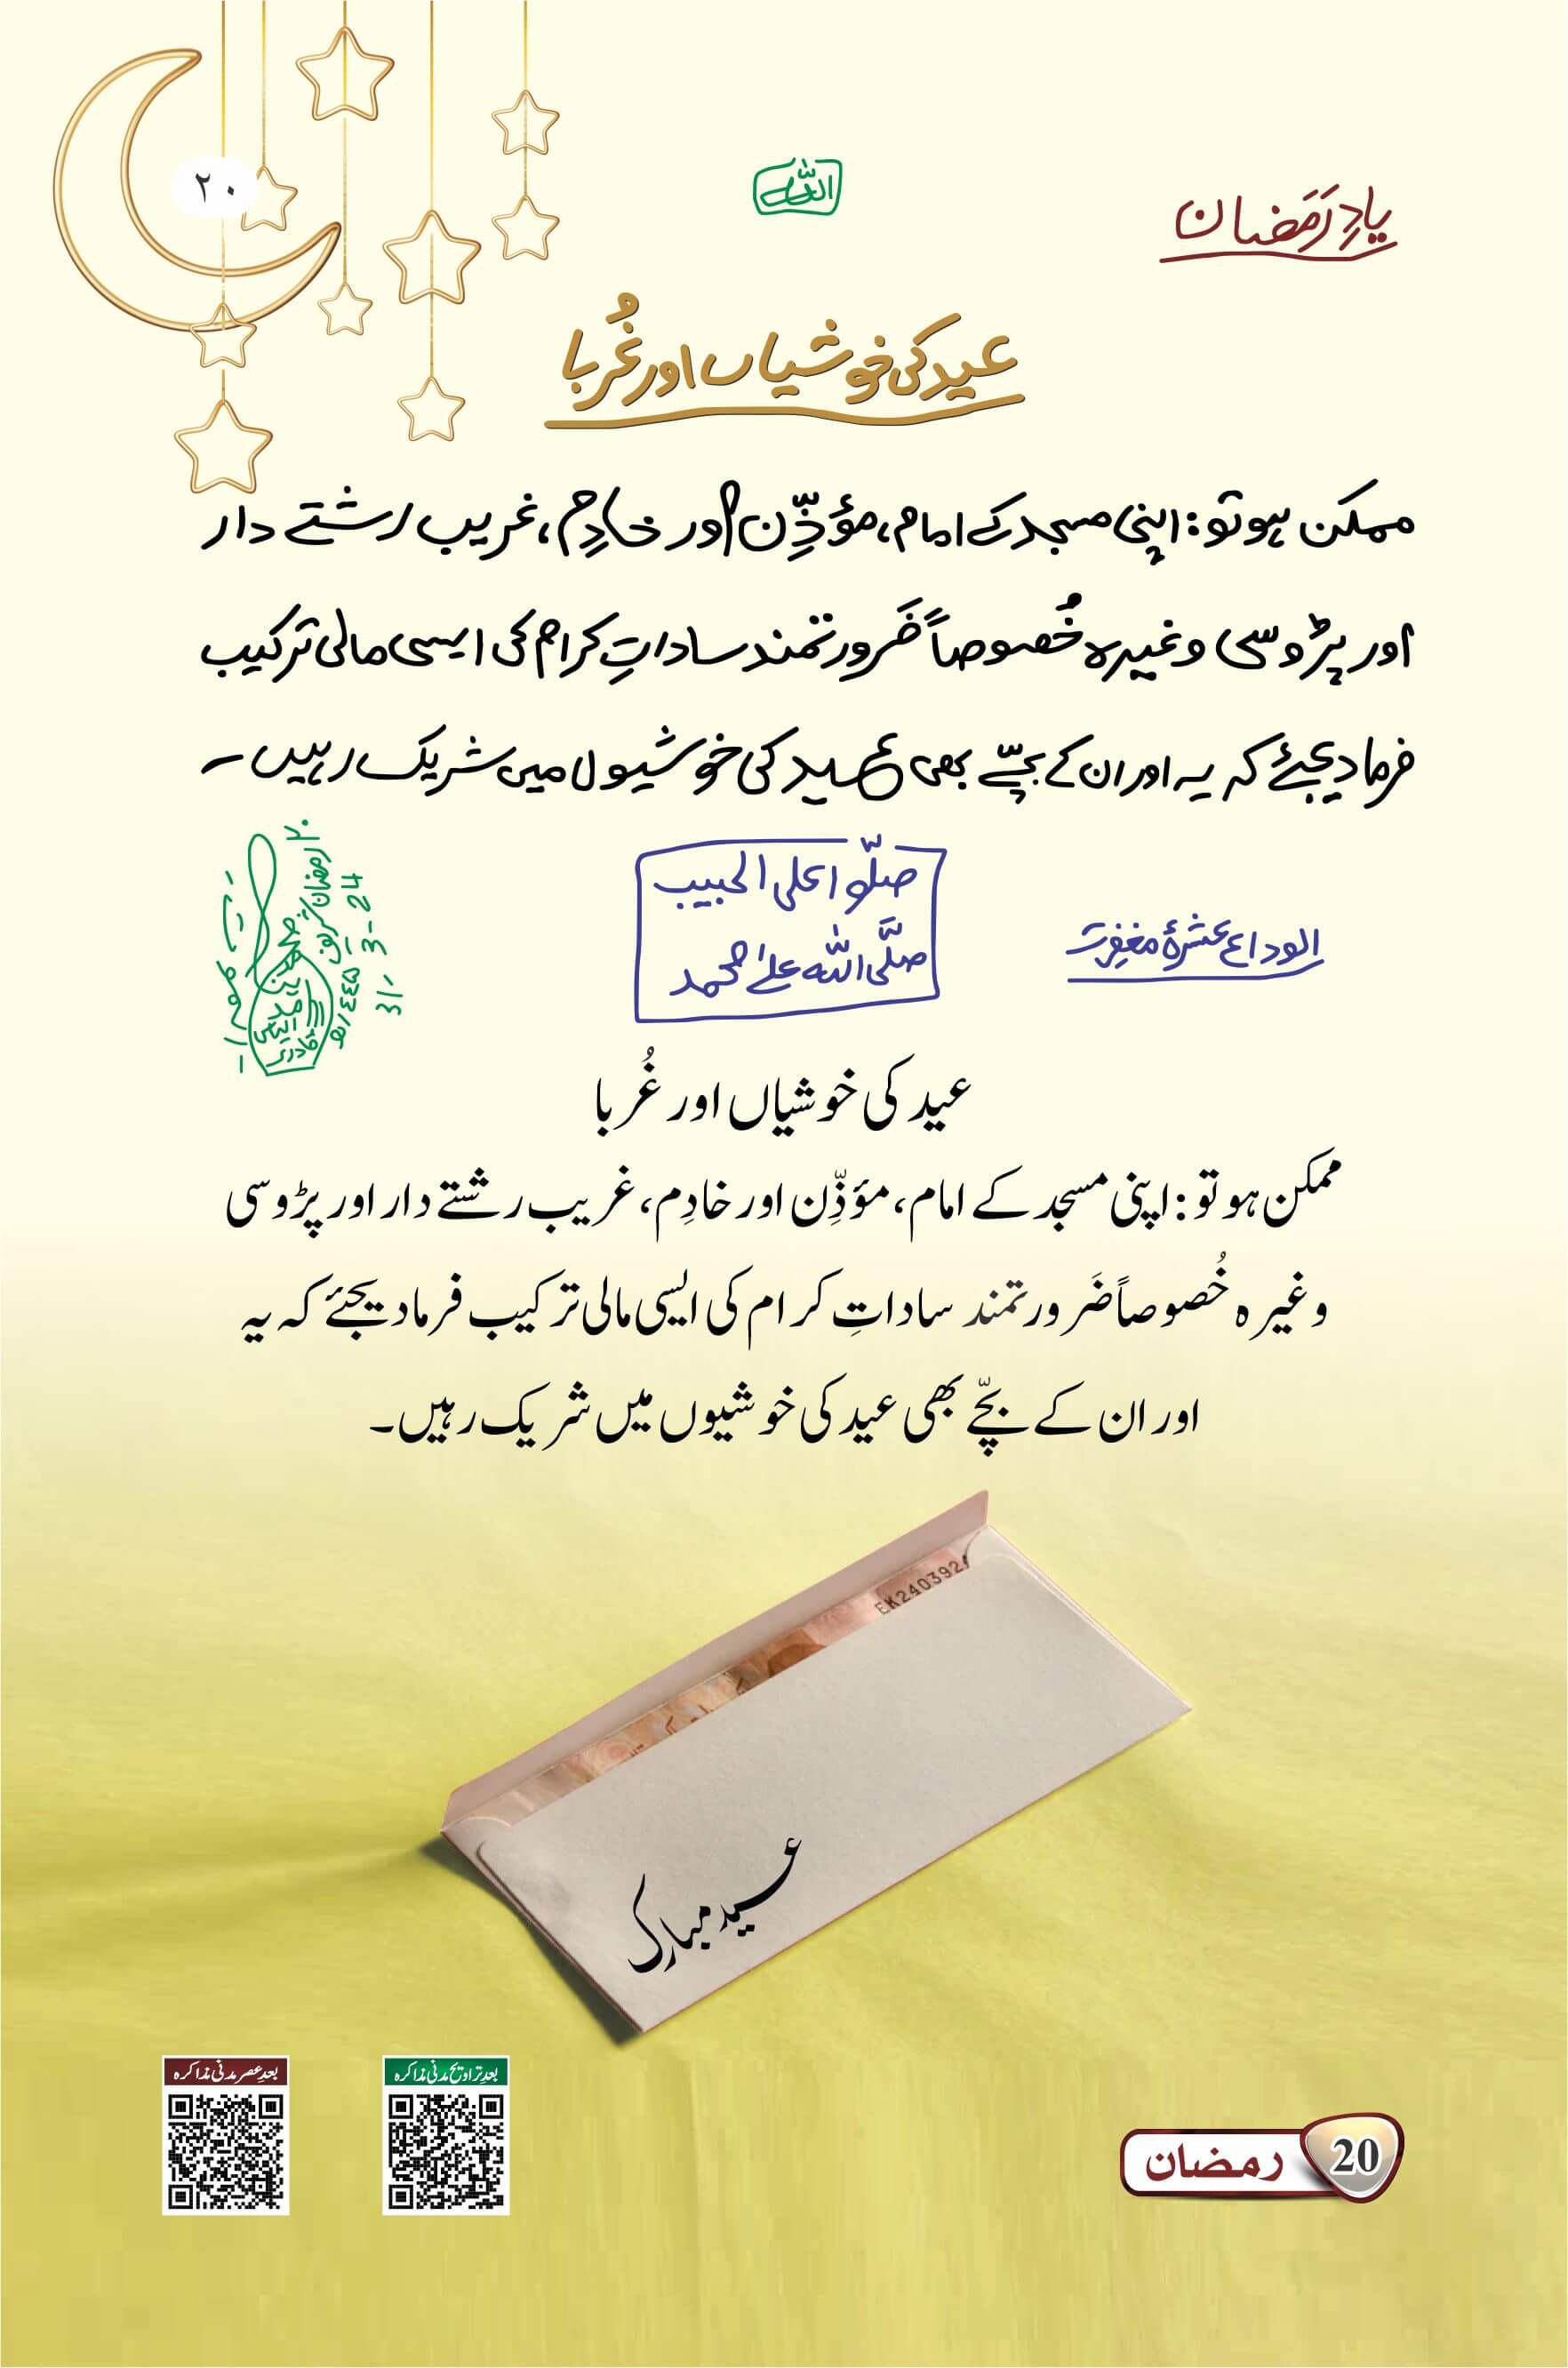 ۲۰
اللہ
یادِ رَمَضان
عید کی خوشیاں اور غُربا
ممکن ہو تو: اپنی مسجد کے امام، مؤذِّن اور خادِم، غریب رشتے دار
اور پڑوسی وغیرہ خُصوصاً ضَرورتمند ساداتِ کرام کی ایسی مالی ترکیب
فرما دیجئے کہ یہ اور ان کے بچّے بھی عید کی خوشیوں میں شریک رہیں۔
الوداع عشرۂ مغفِرت
صلّوا علی الحبیب
صلَّی اللہ علیٰ محمد
۲۰ رمضان شریف
۱۴۴۵ھ
31-3-24
عید کی خوشیاں اور غُربا
ممکن ہو تو: اپنی مسجد کے امام، مؤذِّن اور خادِم، غریب رشتے دار اور پڑوسی
وغیرہ خُصوصاً ضَرورتمند ساداتِ کرام کی ایسی مالی ترکیب فرما دیجئے کہ یہ
اور ان کے بچّے بھی عید کی خوشیوں میں شریک رہیں۔
EK240392
عید مبارک
بعدِ عصر مدنی مذاکرہ
بعدِ تراویح مدنی مذاکرہ
20 رمضان